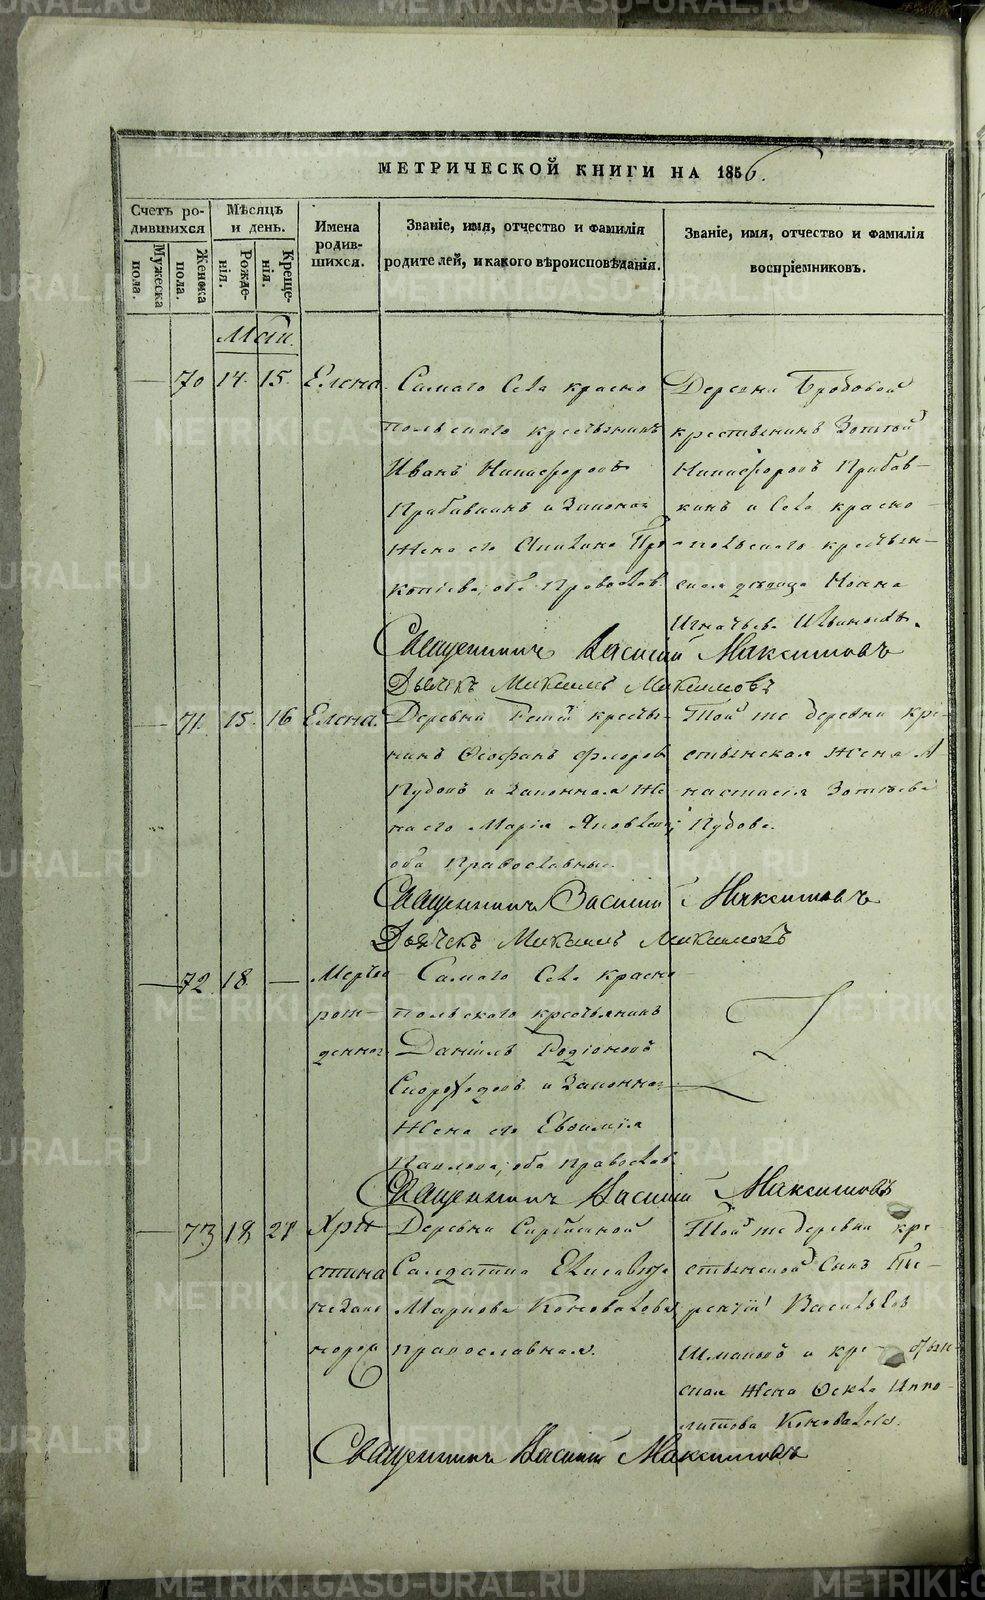 МЕТРИЧЕСКОЙ КНИГИ НА 1856.
Счетъ родившихся
Мѣсяцъ и день.
Имена родившихся.
Званіе, имя, отчество и фамилія родителей, и какого вѣроисповѣданія.
Званіе, имя, отчество и фамилія воспріемниковъ.
Мужеска пола.
Женска пола.
Рожденія.
Крещенія.
Май.
— 70 14. 15. Елена.
Самаго Села красно
польскаго крестьянинъ
Иванъ Никифоровъ
и Законная
Жена его Про
копіева, оба Православ.
Деревни Бродовой
крестьянинъ Зотей
Никифоровъ
и Села красно
польскаго крестьян-
ская дѣвица
Игнатьева
Священникъ Василій Максимовъ
Дьячекъ Михаилъ Максимовъ
— 71. 15. 16 Елена.
Деревни крестья
нинъ Ѳеофанъ Флоровъ
Пудовъ и законная Же
на его Марія Яковлева;
оба Православны.
Той же деревни кре-
стьянская Жена А
настасія Зотѣева
Пудова.
Священникъ Василій Максимовъ
Дьячекъ Михаилъ Максимовъ
— 72. 18. —
Мертво
рож-
деннаго
Самаго Села красно-
польскаго крестьянинъ
Даніилъ Родіоновъ
Скороходовъ и Законная
Жена его Евфимія
Павлова, оба православ.
Священникъ Василій Максимовъ
— 73 18 21
Хри
стина
незако
норож
Деревни
Солдатка Елисавета
Маркова Коновалова,
православная.
Той же деревни кре-
стьянской Сынъ Те-
рентій Васильевъ
и кре
ская Жена Ѳекла Иппо-
литова Коновалова.
Священникъ Василій Максимовъ
METRIKI.GASO-URAL.RU